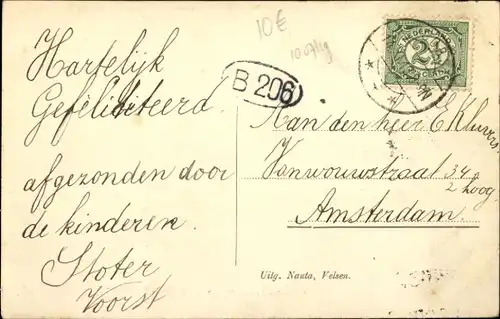 10€
NEDERLAND
2½
CENT
B 206
Hartelijk
Gefeliciteerd
afgezonden door
de kinderen.
Stoter
Voorst
Aan den heer E Kluvers
Vanwouwstraat 34
2 hoog
Amsterdam.
Uitg. Nauta, Velsen.